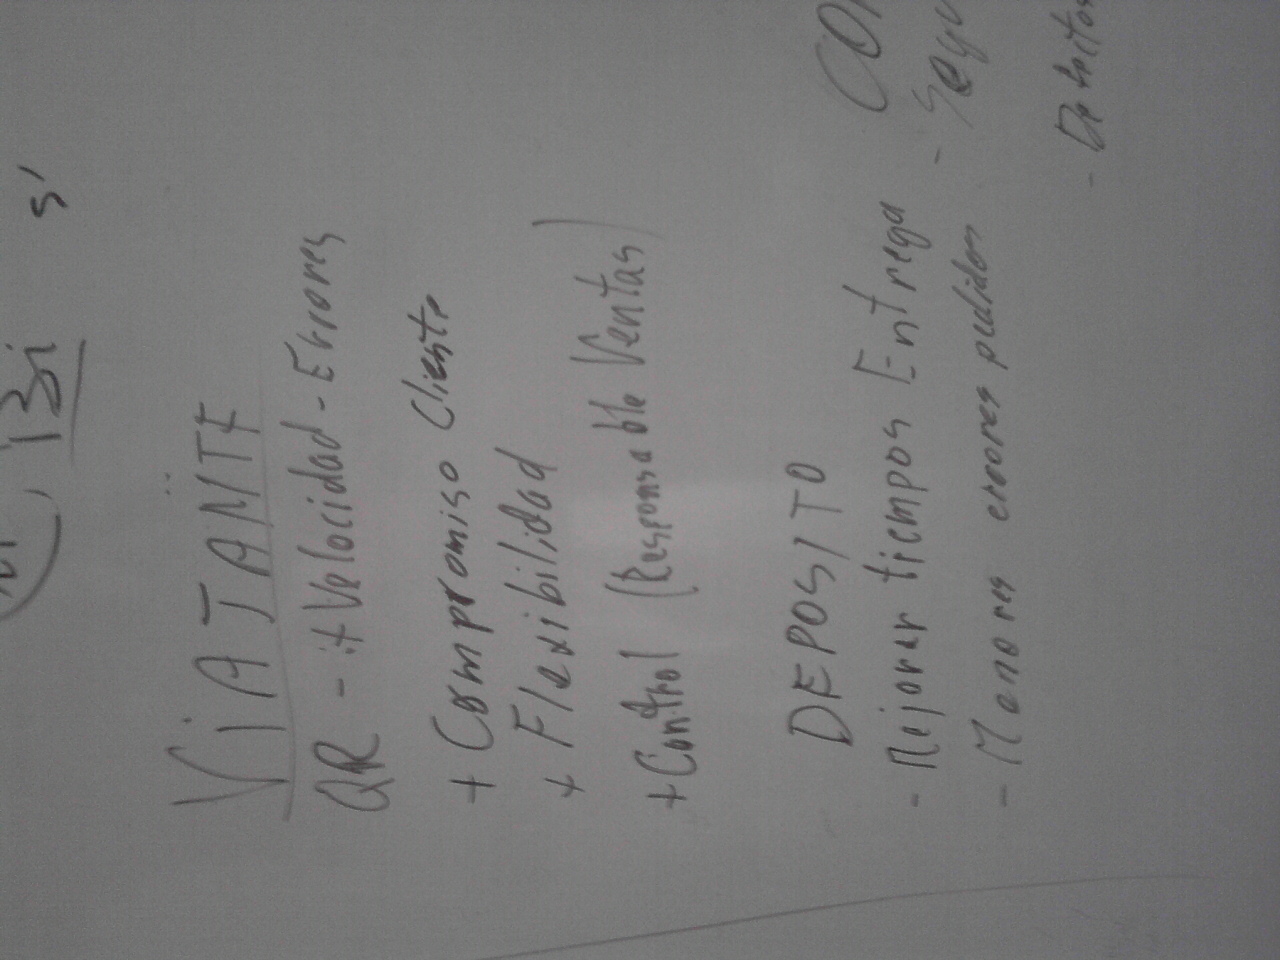 Bi
VIAJANTE
QR - + Velocidad - Errores
+ Compromiso Cliente
+ Flexibilidad
+ Control (Responsable Ventas)
DEPOSITO
- Mejorar tiempos Entrega
- Menores errores pedidos
CO
- Segu
- Defectos